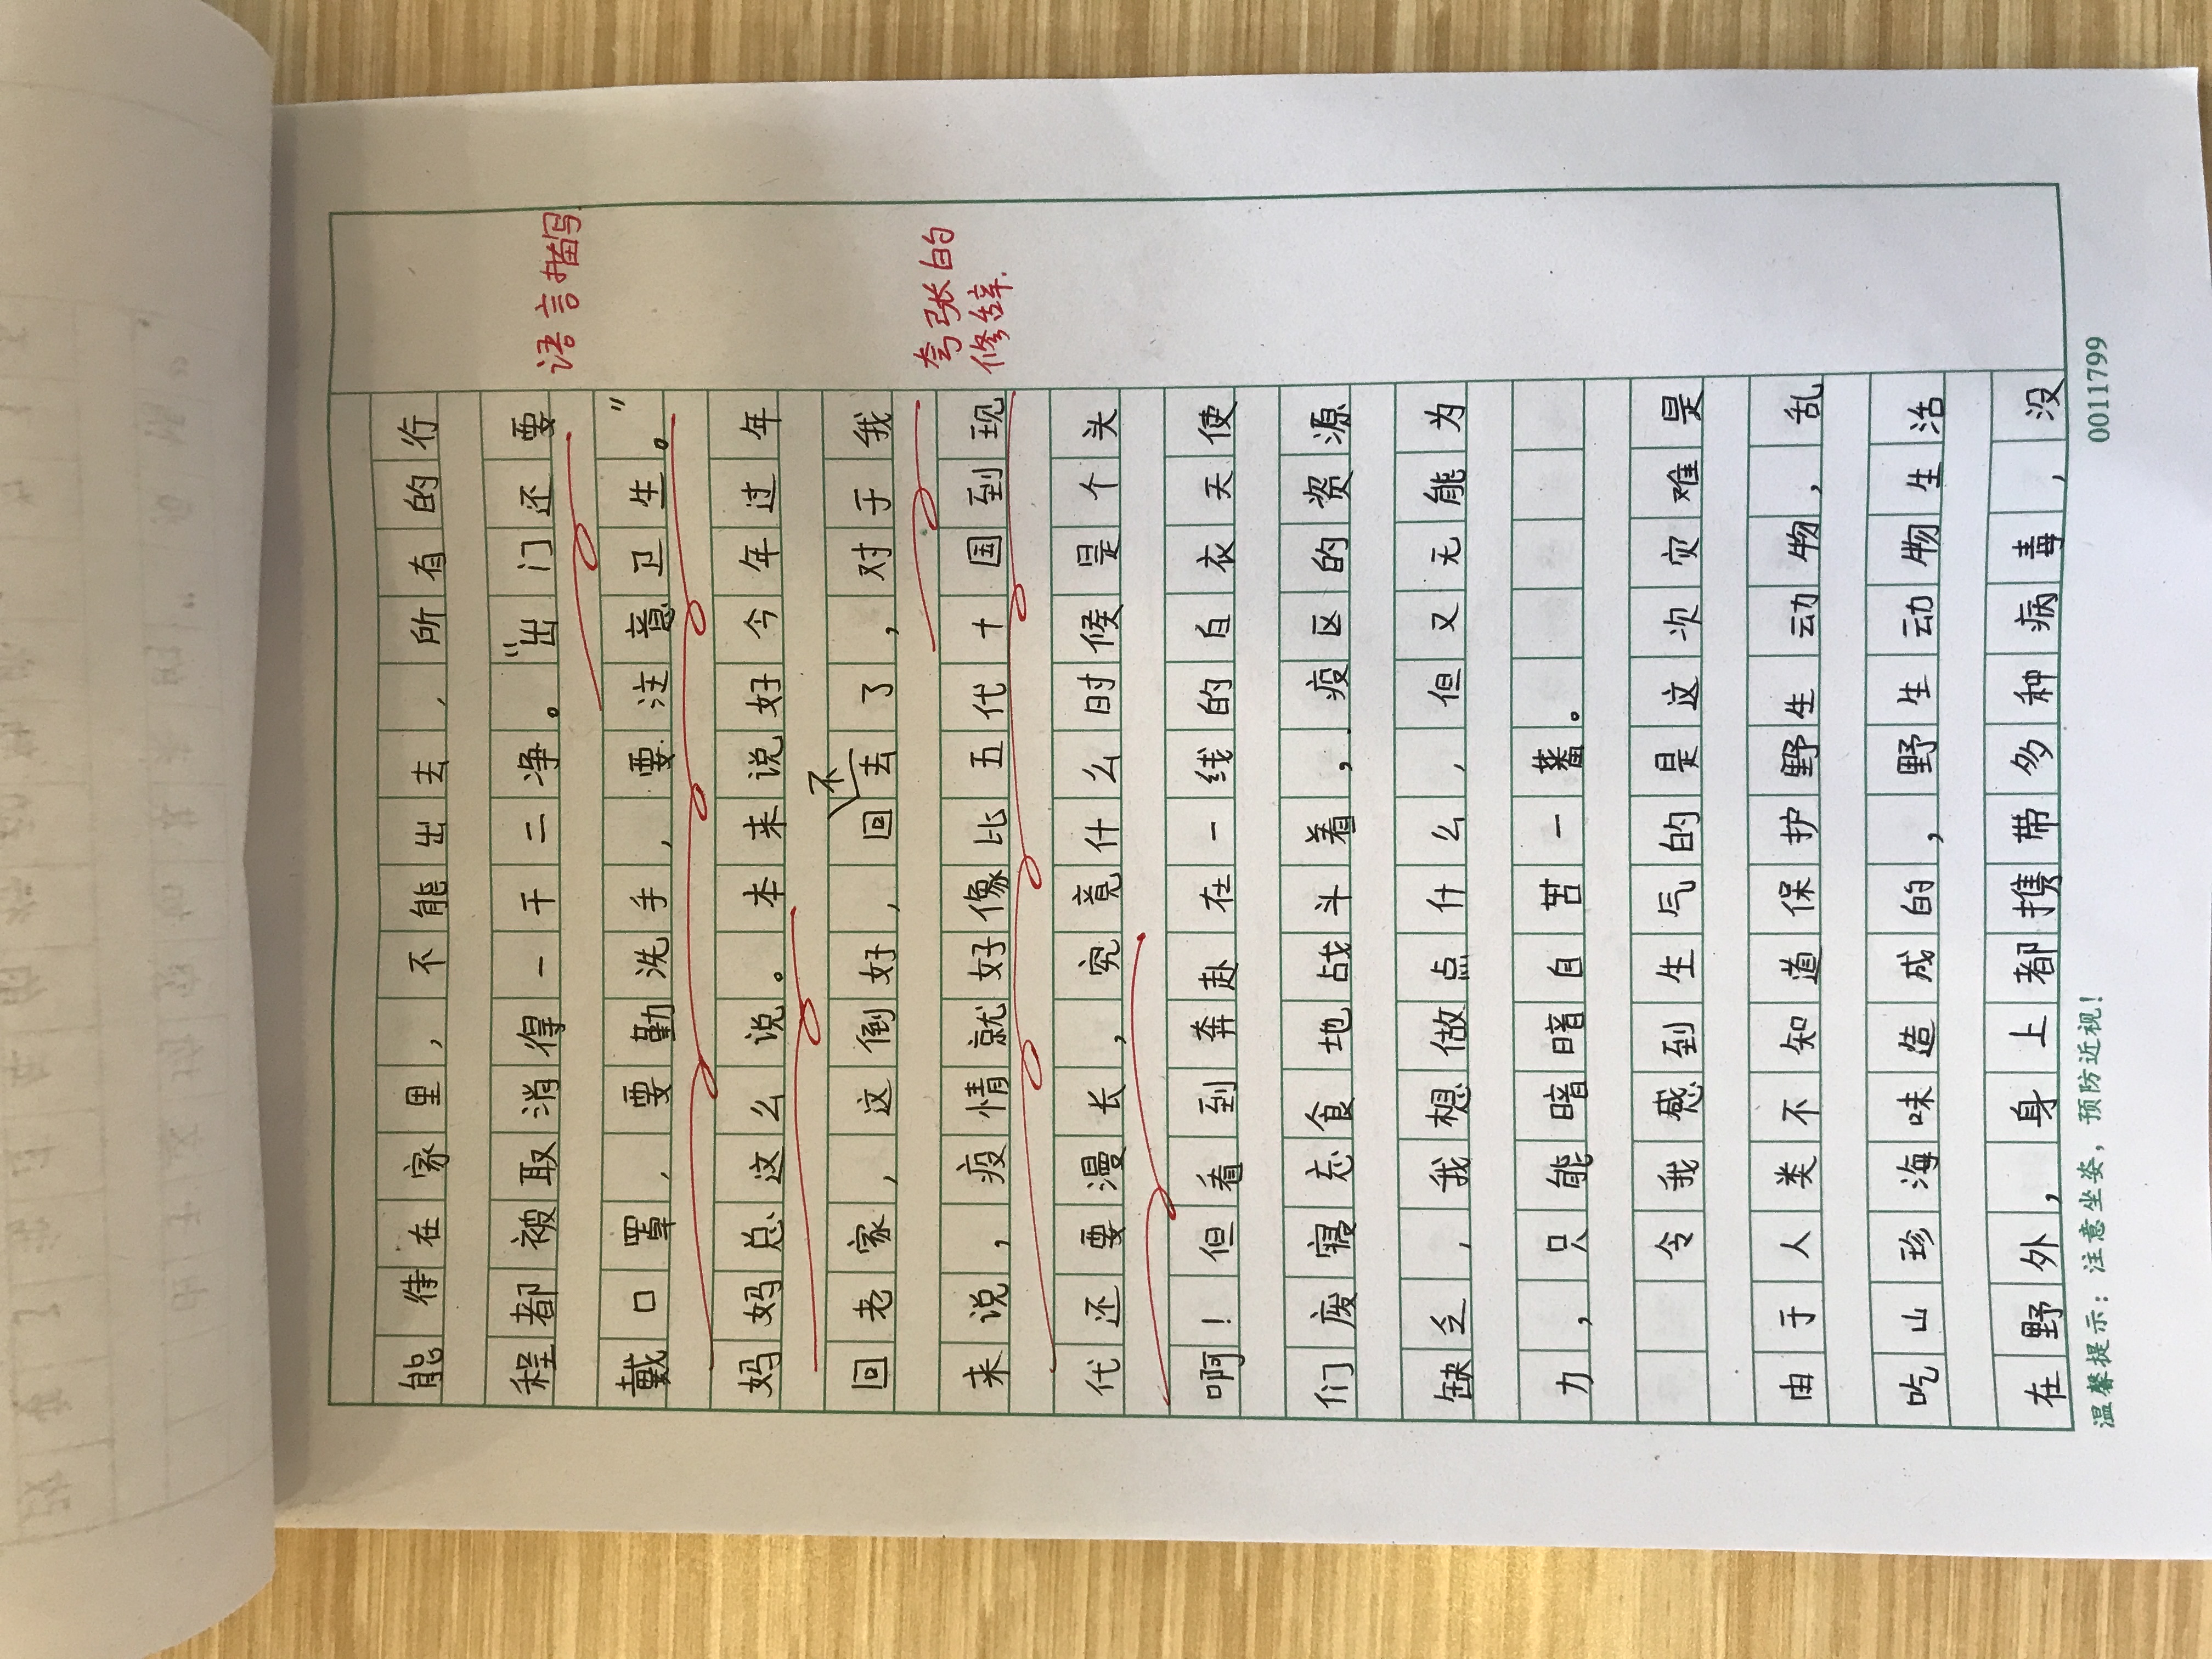 能待在家里，不能出去，所有的行
程都被取消得一干二净。“出门还要
语言描写
戴口罩，要勤洗手，要注意卫生。”
妈妈总这么说。本来说好今年过年
回老家，这倒好，回不去了，对于我
夸张的
修辞.
来说，疫情就好像比五代十国到现
代还要漫长，究竟什么时候是个头
啊！但看到奔赴在一线的白衣天使
们废寝忘食地战斗着，疫区的资源
缺乏，我想做点什么，但又无能为
力，只能暗暗自苦一番。
令我感到生气的是这次灾难是
由于人类不知道保护野生动物，乱
吃山珍海味造成的，野生动物生活
在野外，身上都携带多种病毒，没
温馨提示：注意坐姿，预防近视！
0011799